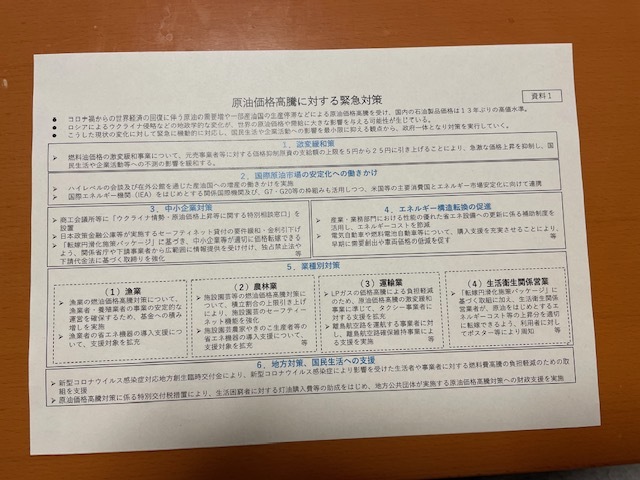 資料1
原油価格高騰に対する緊急対策
● コロナ禍からの世界経済の回復に伴う原油の需要増や一部産油国の生産停滞などによる原油価格の高騰を受け、国内の石油製品価格は13年ぶりの高値水準。
● ロシアによるウクライナ侵略などの地政学的な変化が、世界の原油価格や供給に大きな影響を与える可能性が生じている。
● こうした現状の変化に対して緊急に機動的に対応し、国民生活や企業活動への影響を最小限に抑える観点から、政府一体となり対策を実行していく。
1．激変緩和策
➢ 燃料油価格の激変緩和事業について、元売事業者等に対する価格抑制原資の支給額の上限を5円から25円に引き上げることにより、急激な価格上昇を抑制し、国
民生活や企業活動等への不測の影響を緩和する。
2．国際原油市場の安定化への働きかけ
➢ ハイレベルの会談及び在外公館を通じた産油国への増産の働きかけを実施
➢ 国際エネルギー機関（IEA）をはじめとする関係国際機関及び、G7・G20等の枠組みも活用しつつ、米国等の主要消費国とエネルギー市場安定化に向けて連携
3．中小企業対策
➢ 商工会議所等に「ウクライナ情勢・原油価格上昇等に関する特別相談窓口」を
設置
➢ 日本政策金融公庫等が実施するセーフティネット貸付の要件緩和・金利引下げ
➢ 「転嫁円滑化施策パッケージ」に基づき、中小企業等が適切に価格転嫁できる
よう、関係省庁や下請事業者から広範囲に情報提供を受け付け、独占禁止法や
下請代金法に基づく取締りを強化 等
4．エネルギー構造転換の促進
➢ 産業・業務部門における性能の優れた省エネ設備への更新に係る補助制度を
活用し、エネルギーコストを節減
➢ 電気自動車や燃料電池自動車等について、購入支援を充実させることにより、
早期に需要創出や車両価格の低減を促す 等
5．業種別対策
（1）漁業
➢ 漁業の燃油価格高騰対策について、
漁業者・養殖業者の事業の安定的な
運営を確保するため、基金への積み
増しを実施
➢ 漁業者の省エネ機器の導入支援につ
いて、支援対象を拡充
（2）農林業
➢ 施設園芸等の燃油価格高騰対策に
ついて、積立割合の上限引き上げ
により、施設園芸のセーフティー
ネット機能を強化
➢ 施設園芸農家やきのこ生産者等の
省エネ機器の導入支援について、
支援対象を拡充 等
（3）運輸業
➢ LPガスの価格高騰による負担軽減
のため、原油価格高騰の激変緩和
事業に準じて、タクシー事業者に
対する支援を拡充
➢ 離島航空路を運航する事業者に対
し、離島航空路確保維持事業によ
る支援を実施 等
（4）生活衛生関係営業
➢ 「転嫁円滑化施策パッケージ」に
基づく取組に加え、生活衛生関係
営業者が、原油をはじめとするエ
ネルギーコスト等の上昇分を適切
に転嫁できるよう、利用者に対し
てポスター等により周知 等
6．地方対策、国民生活への支援
➢ 新型コロナウイルス感染症対応地方創生臨時交付金により、新型コロナウイルス感染症により影響を受けた生活者や事業者に対する燃料費高騰の負担軽減のための取
組を支援
➢ 原油価格高騰対策に係る特別交付税措置により、生活困窮者に対する灯油購入費等の助成をはじめ、地方公共団体が実施する原油価格高騰対策への財政支援を実施